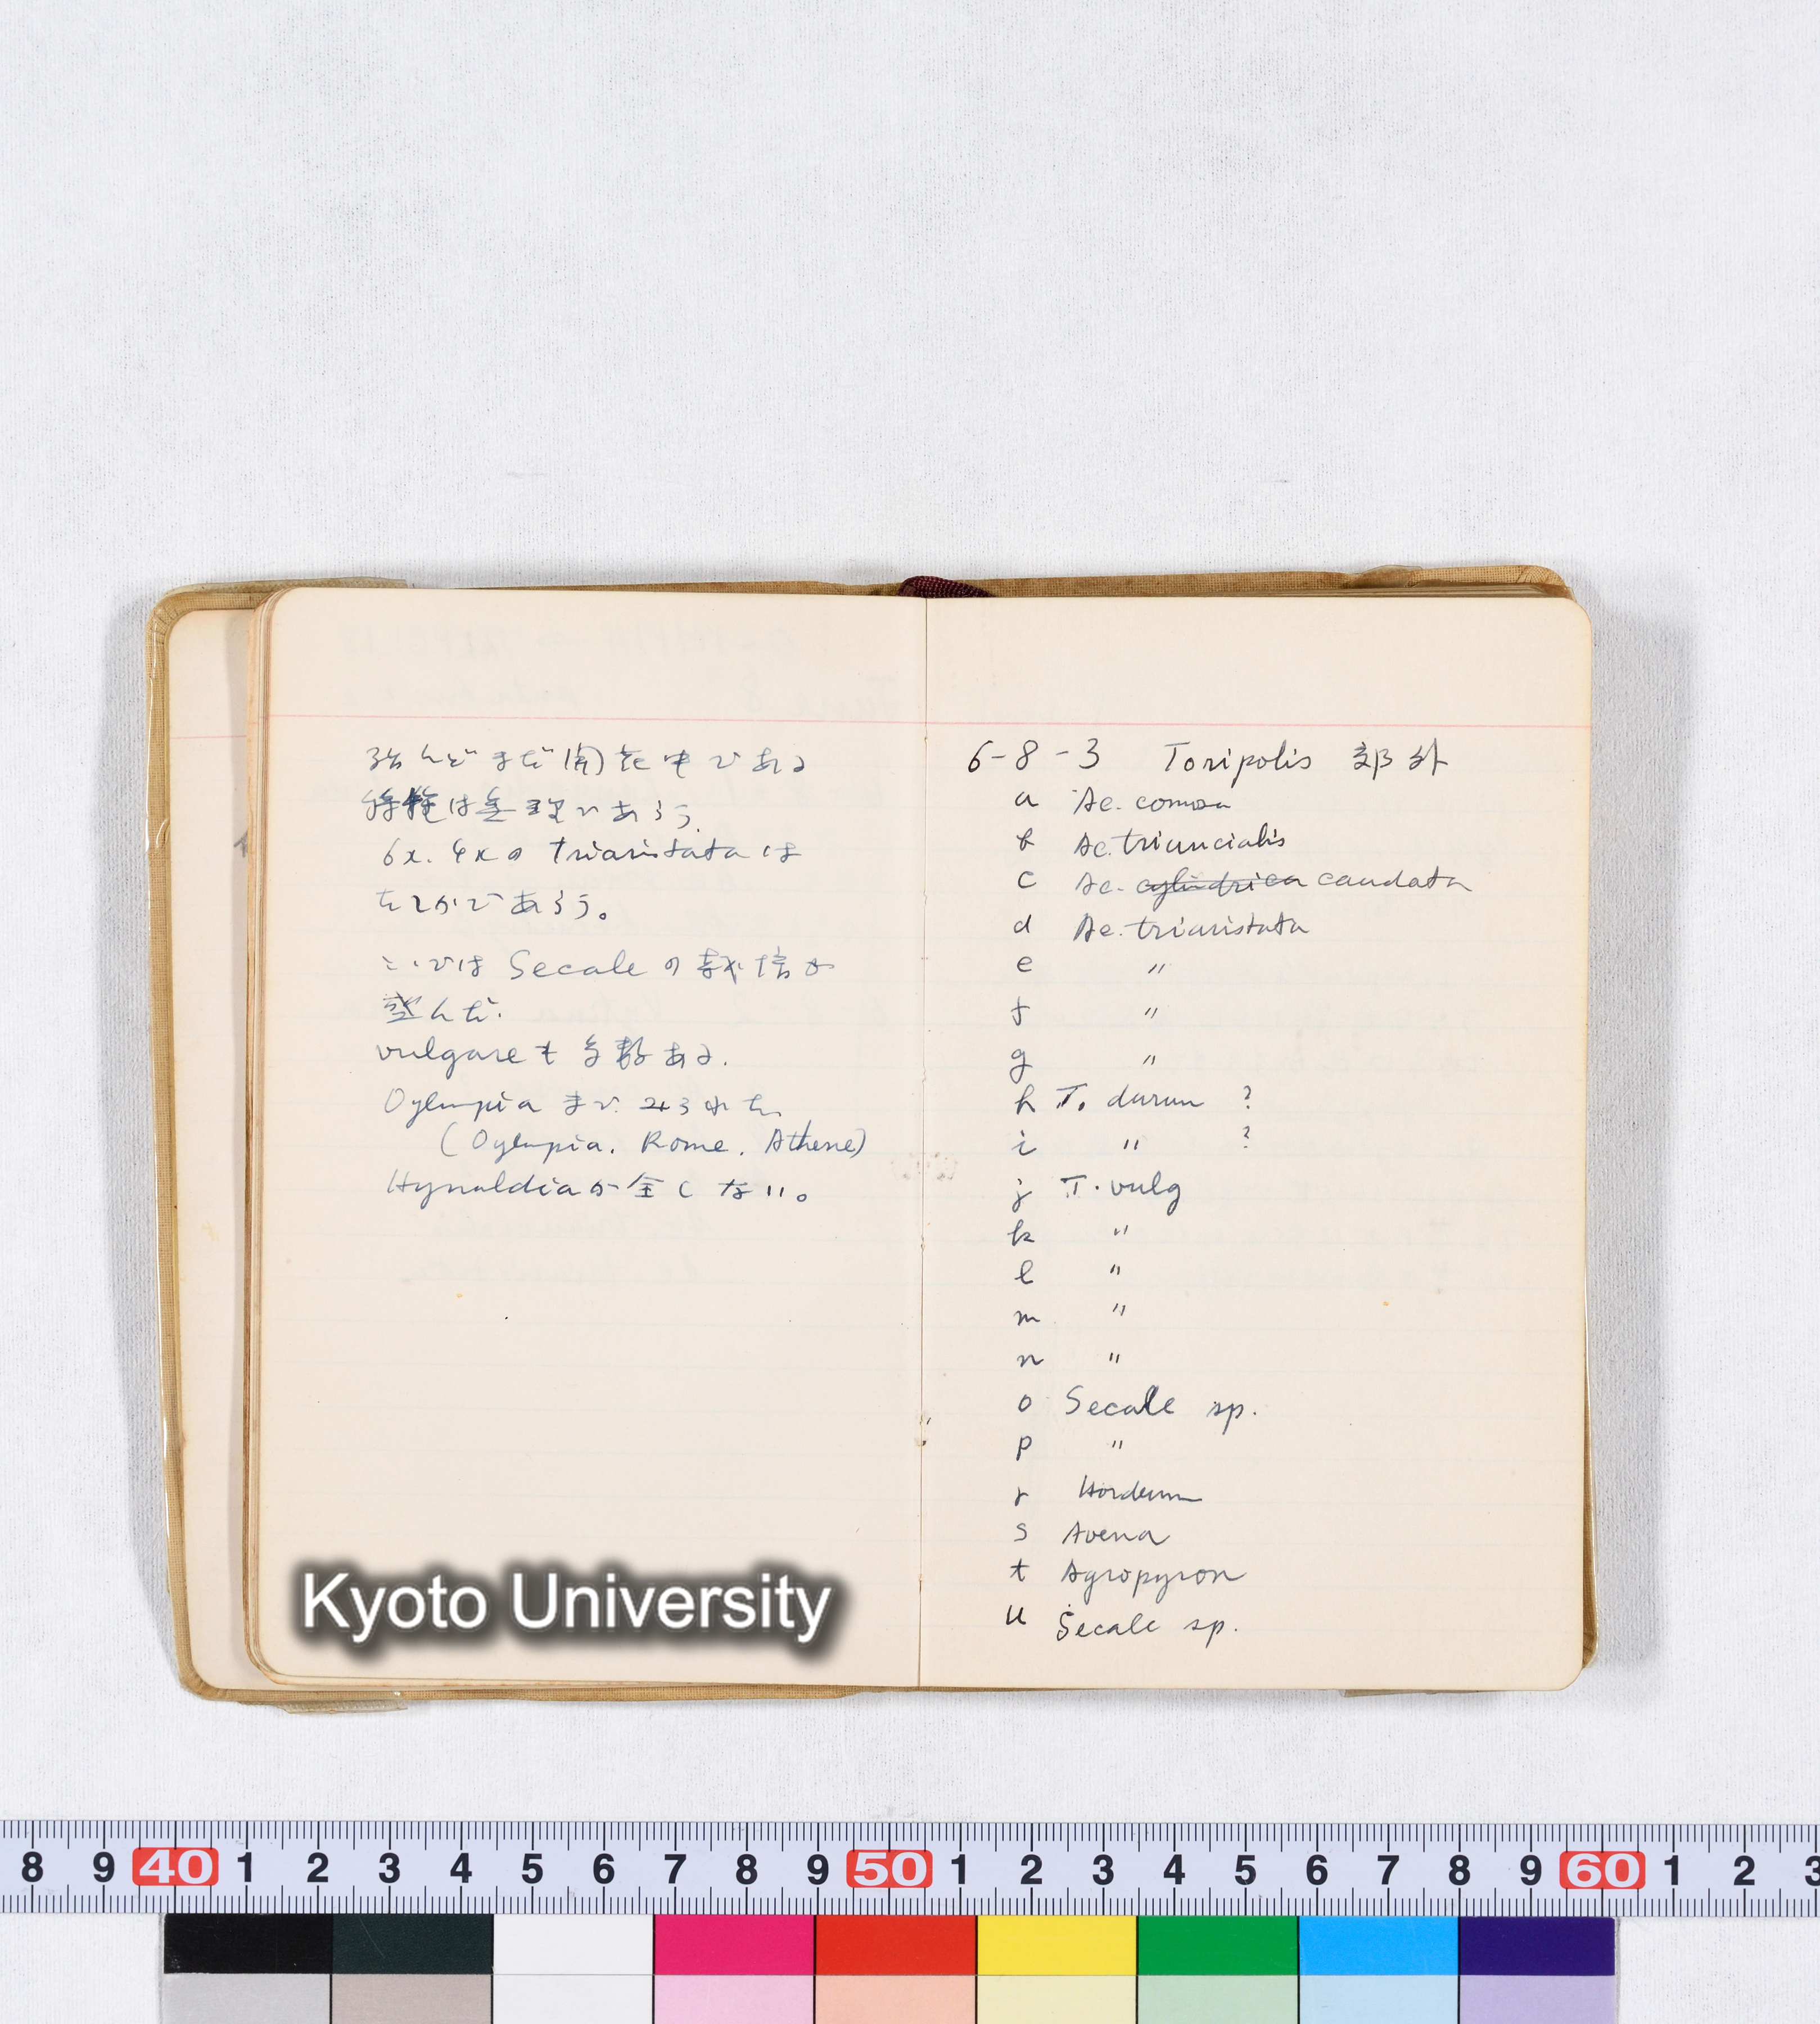 殆んどまだ開花中である
採種は無理であろう.
6x. 4xの triaristata は
たしかであろう。
こゝでは Secale の栽培が
盛んだ.
vulgare も多数ある.
Oylmpia まで みられた
(Oylmpia. Rome. Athene)
Hynaldiaが全くない。
Kyoto University
6-8-3 Toripolis 郊外
a Ae. comosa
b Ae. triuncialis
c Ae. cylindrica caudata
d Ae. triaristata
e 〃
f 〃
g 〃
h T. durum ?
i 〃 ?
j T. vulg
k 〃
l 〃
m 〃
n 〃
o Secale sp.
p 〃
r Hordeum
s Avena
t Agropyron
u Secale sp.
8 9 40 1 2 3 4 5 6 7 8 9 50 1 2 3 4 5 6 7 8 9 60 1 2 3